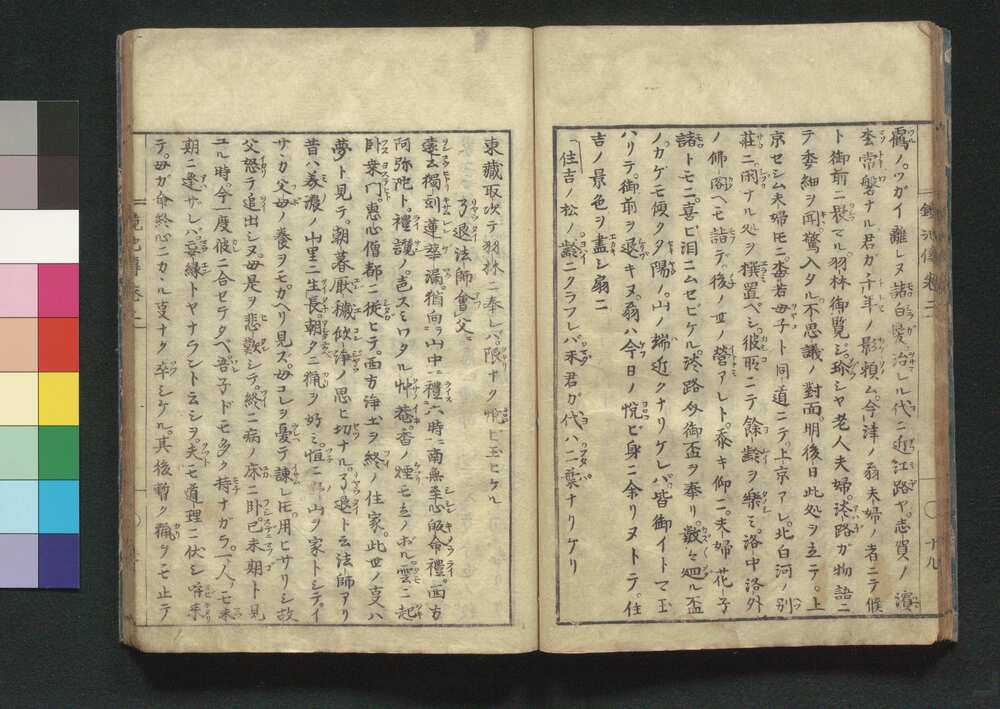 鶴ノツガイ離レヌ諸白髪治レル代ニ近江路ヤ。志賀ノ濱
松常磐ナル君ガ千年ノ影頼ム。今津ノ翁夫婦ノ者ニテ候
ト御前ニ畏マル。羽林御覧ジ。珍シヤ老人夫婦。淡路ガ物語ニ
テ委細ヲ聞驚入タル不思議ノ對面。明後日此処ヲ立テ。上
京セシム夫婦モニ。畨若母子ト同道ニテ。上京アレ。北白河ノ別
莊ニ閑ナル処ヲ撰置ベシ。彼所ニテ餘齢ヲ樂ミ。洛中洛外
ノ佛閣ヘモ詣テ。後ノ世ノ營アレト。忝キ仰ニ。夫婦花子
諸トモニ。喜ビ泪ニムセビケル。淡路公御盃ヲ奉リ。數々廻ル盃
ノカゲモ傾ク夕陽ノ。山ノ端近クナリケレバ。皆御イトマ玉
ハリテ。御前ヲ退キヌ。翁ハ今日ノ悦ビ身ニ余リヌトテ。住
吉ノ景色ヲ畫シ扇ニ
住吉ノ松ノ齢ニクラブレバ末君ガ代ハ二葉ナリケリ
東藏取次テ羽林ニ奉レバ。限ナク悦ビ玉ヒケル
了退法師會父
遠公獨刻蓮華漏。猶向山中禮六時。南無至心皈命禮。西方
阿弥陀ト。禮讃ノ邑スミワタル艸菴。香ノ煙モ立ノボル。雲ニ起
卧柴門。惠心僧都ニ從ヒテ。西方浄土ヲ終ノ住家。此世ノ支ハ
夢ト見テ。朝暮厭穢欣浄ノ思ヒ切ナル。了退ト云法師アリ
昔ハ美濃ノ山里ニ生長。朝夕ニ獵ヲ好ミ。恒ニ野山ヲ家トシテ。イ
サヽカ父母ノ養ヲモガヘリ見ズ。母コレヲ憂テ諫レ𪜈用ヒサリシ故
父怒テ追出シヌ。母是ヲ悲歎シテ。終ニ病ノ床ニ卧。已末期ト見
ユル時。今一度彼ニ合セテタベ。吾子ドモ多ク持ナガラ。一人ノモ末
期ニ逢サレバ。妄縁トヤナラントエシヲ。夫モ道理ニ伏シ。呼来
テ。母ガ命終心ニカヽル支ナク卒シケル。其後暫ク獵ヲモ止テ